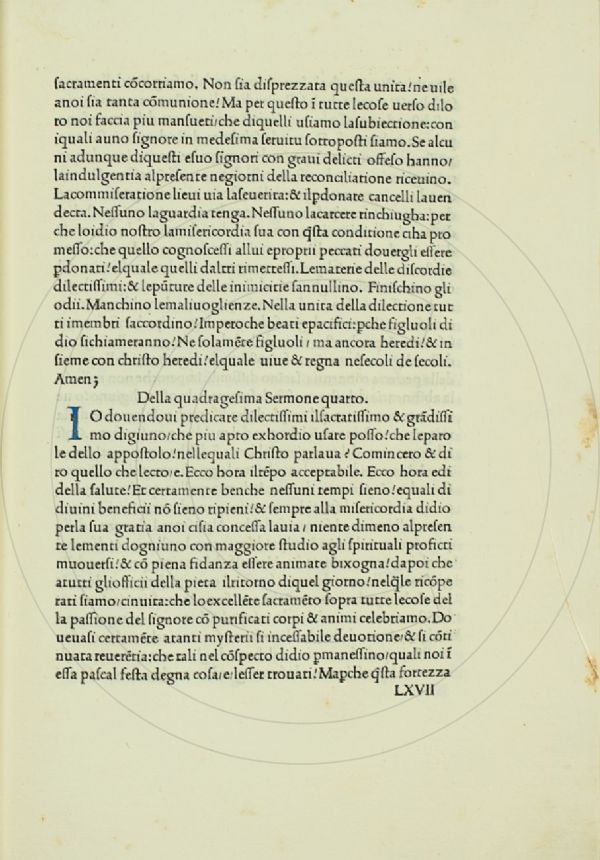 ſacramenti cōcorriamo. Non ſia diſprezzata queſta unita! ne uile
anoi ſia tanta cōmunione! Ma per queſto ī tutte lecoſe uerſo dilo
ro noi faccia piu manſueti/che diquelli uſiamo laſubiectione:con
iquali auno ſignore in medeſima ſeruitu ſottopoſti ſiamo. Se alcu
ni adunque diqueſti eſuo ſignori con graui delicti offeſo hanno/
laindulgentia alpreſente negiorni della reconciliatione riceuino.
Lacommiſeratione lieui uia laſeuerita:& ilpdonare cancelli lauen
decta. Neſſuno laguardia tenga. Neſſuno lacarcere rinchiugha: per
che loidio noſtro lamiſericordia ſua con qſta conditione ciha pro
meſſo: che quello cognoſceſſi allui eproprii peccati douergli eſſere
pdonati! elquale quelli daltri rimetteſſi. Lematerie delle diſcordie
dilectiſſimi: & lepūture delle inimicitie ſannullino. Finiſchino gli
odii. Manchino lemaliuoglienze. Nella unita della dilectione tut
ti imembri ſaccordino! Imperoche beati epacifici: pche figluoli di
dio ſichiameranno! Ne ſolamēte figluoli / ma ancora heredi! & in
ſieme con chriſto heredi! elquale uiue & regna neſecoli de ſecoli.
Amen;
Della quadrageſima Sermone quarto.
IO douendoui predicare dilectiſſimi ilſacratiſſimo & grādiſſi
mo digiuno/che piu apto exhordio uſare poſſo! che leparo
le dello appoſtolo! nellequali Chriſto parlaua? Comincero & di
ro quello che lecto/e. Ecco hora iltēpo acceptabile. Ecco hora edi
della ſalute! Et certamente benche neſſuni tempi ſieno! equali di
diuini beneficii nō ſieno ripieni! & ſempre alla miſericordia didio
perla ſua gratia anoi ciſia conceſſa lauia / niente dimeno alpreſen
te lementi dogniuno con maggiore ſtudio agli ſpirituali profīcti
muouerſi! & cō piena fidanza eſſere animate bixogna! dapoi che
atutti gliofficii della pieta ilritorno diquel giorno! nelqle ricōpe
rati ſiamo/cinuita: che loexcellēte ſacramēto ſopra tutte lecoſe del
la paſſione del ſignore cō purificati corpi & animi celebriamo. Do
ueuaſi certamēte atanti myſterii ſi inceſſabile deuotione/& ſi cōti
nuata reuerētia: che tali nel cōſpecto didio pmaneſſino/quali noi ī
eſſa paſcal feſta degna coſa/e/leſſer trouati! Mapche qſta fortezza
LXVII